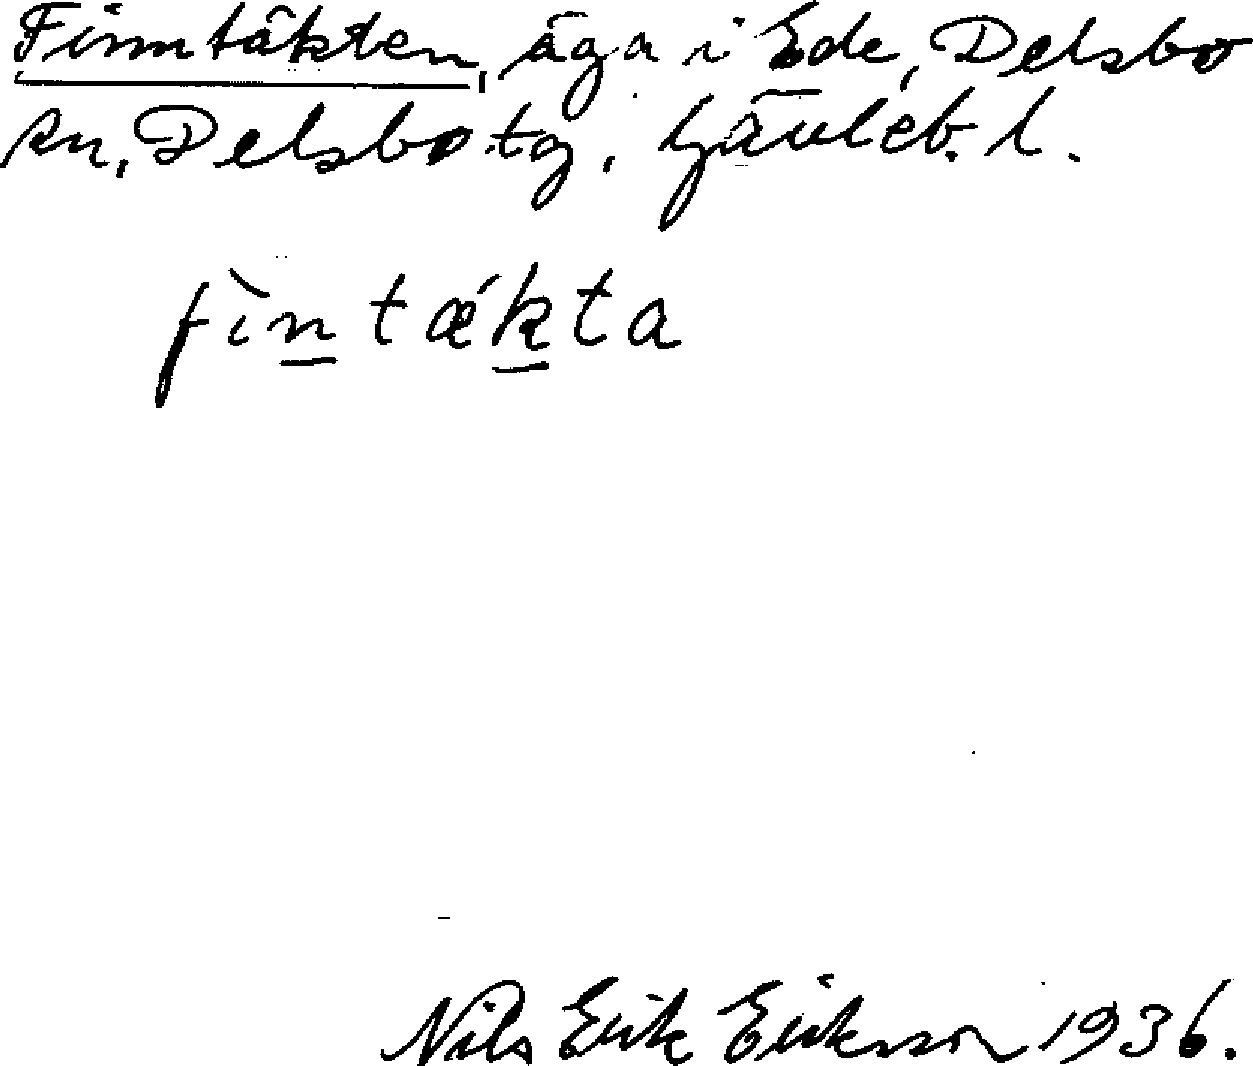 Finntäkten, äga i Ede, Delsbo
sn, Delsbo tg, Gävleb. l.
fìntǽkta
Nils Erik Eriksson 1936.